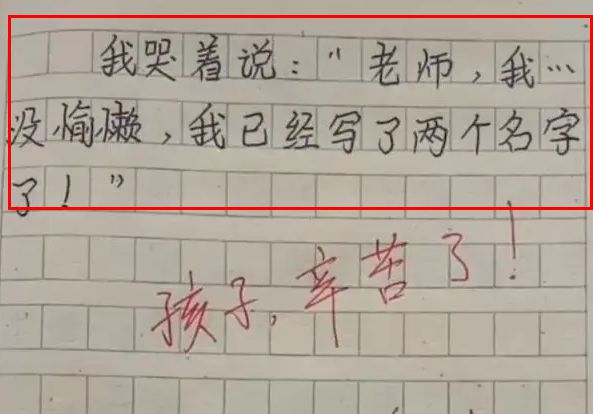 我哭着说：“老师，我…
没偷懒，我已经写了两个名字
了！”
孩子，辛苦了！